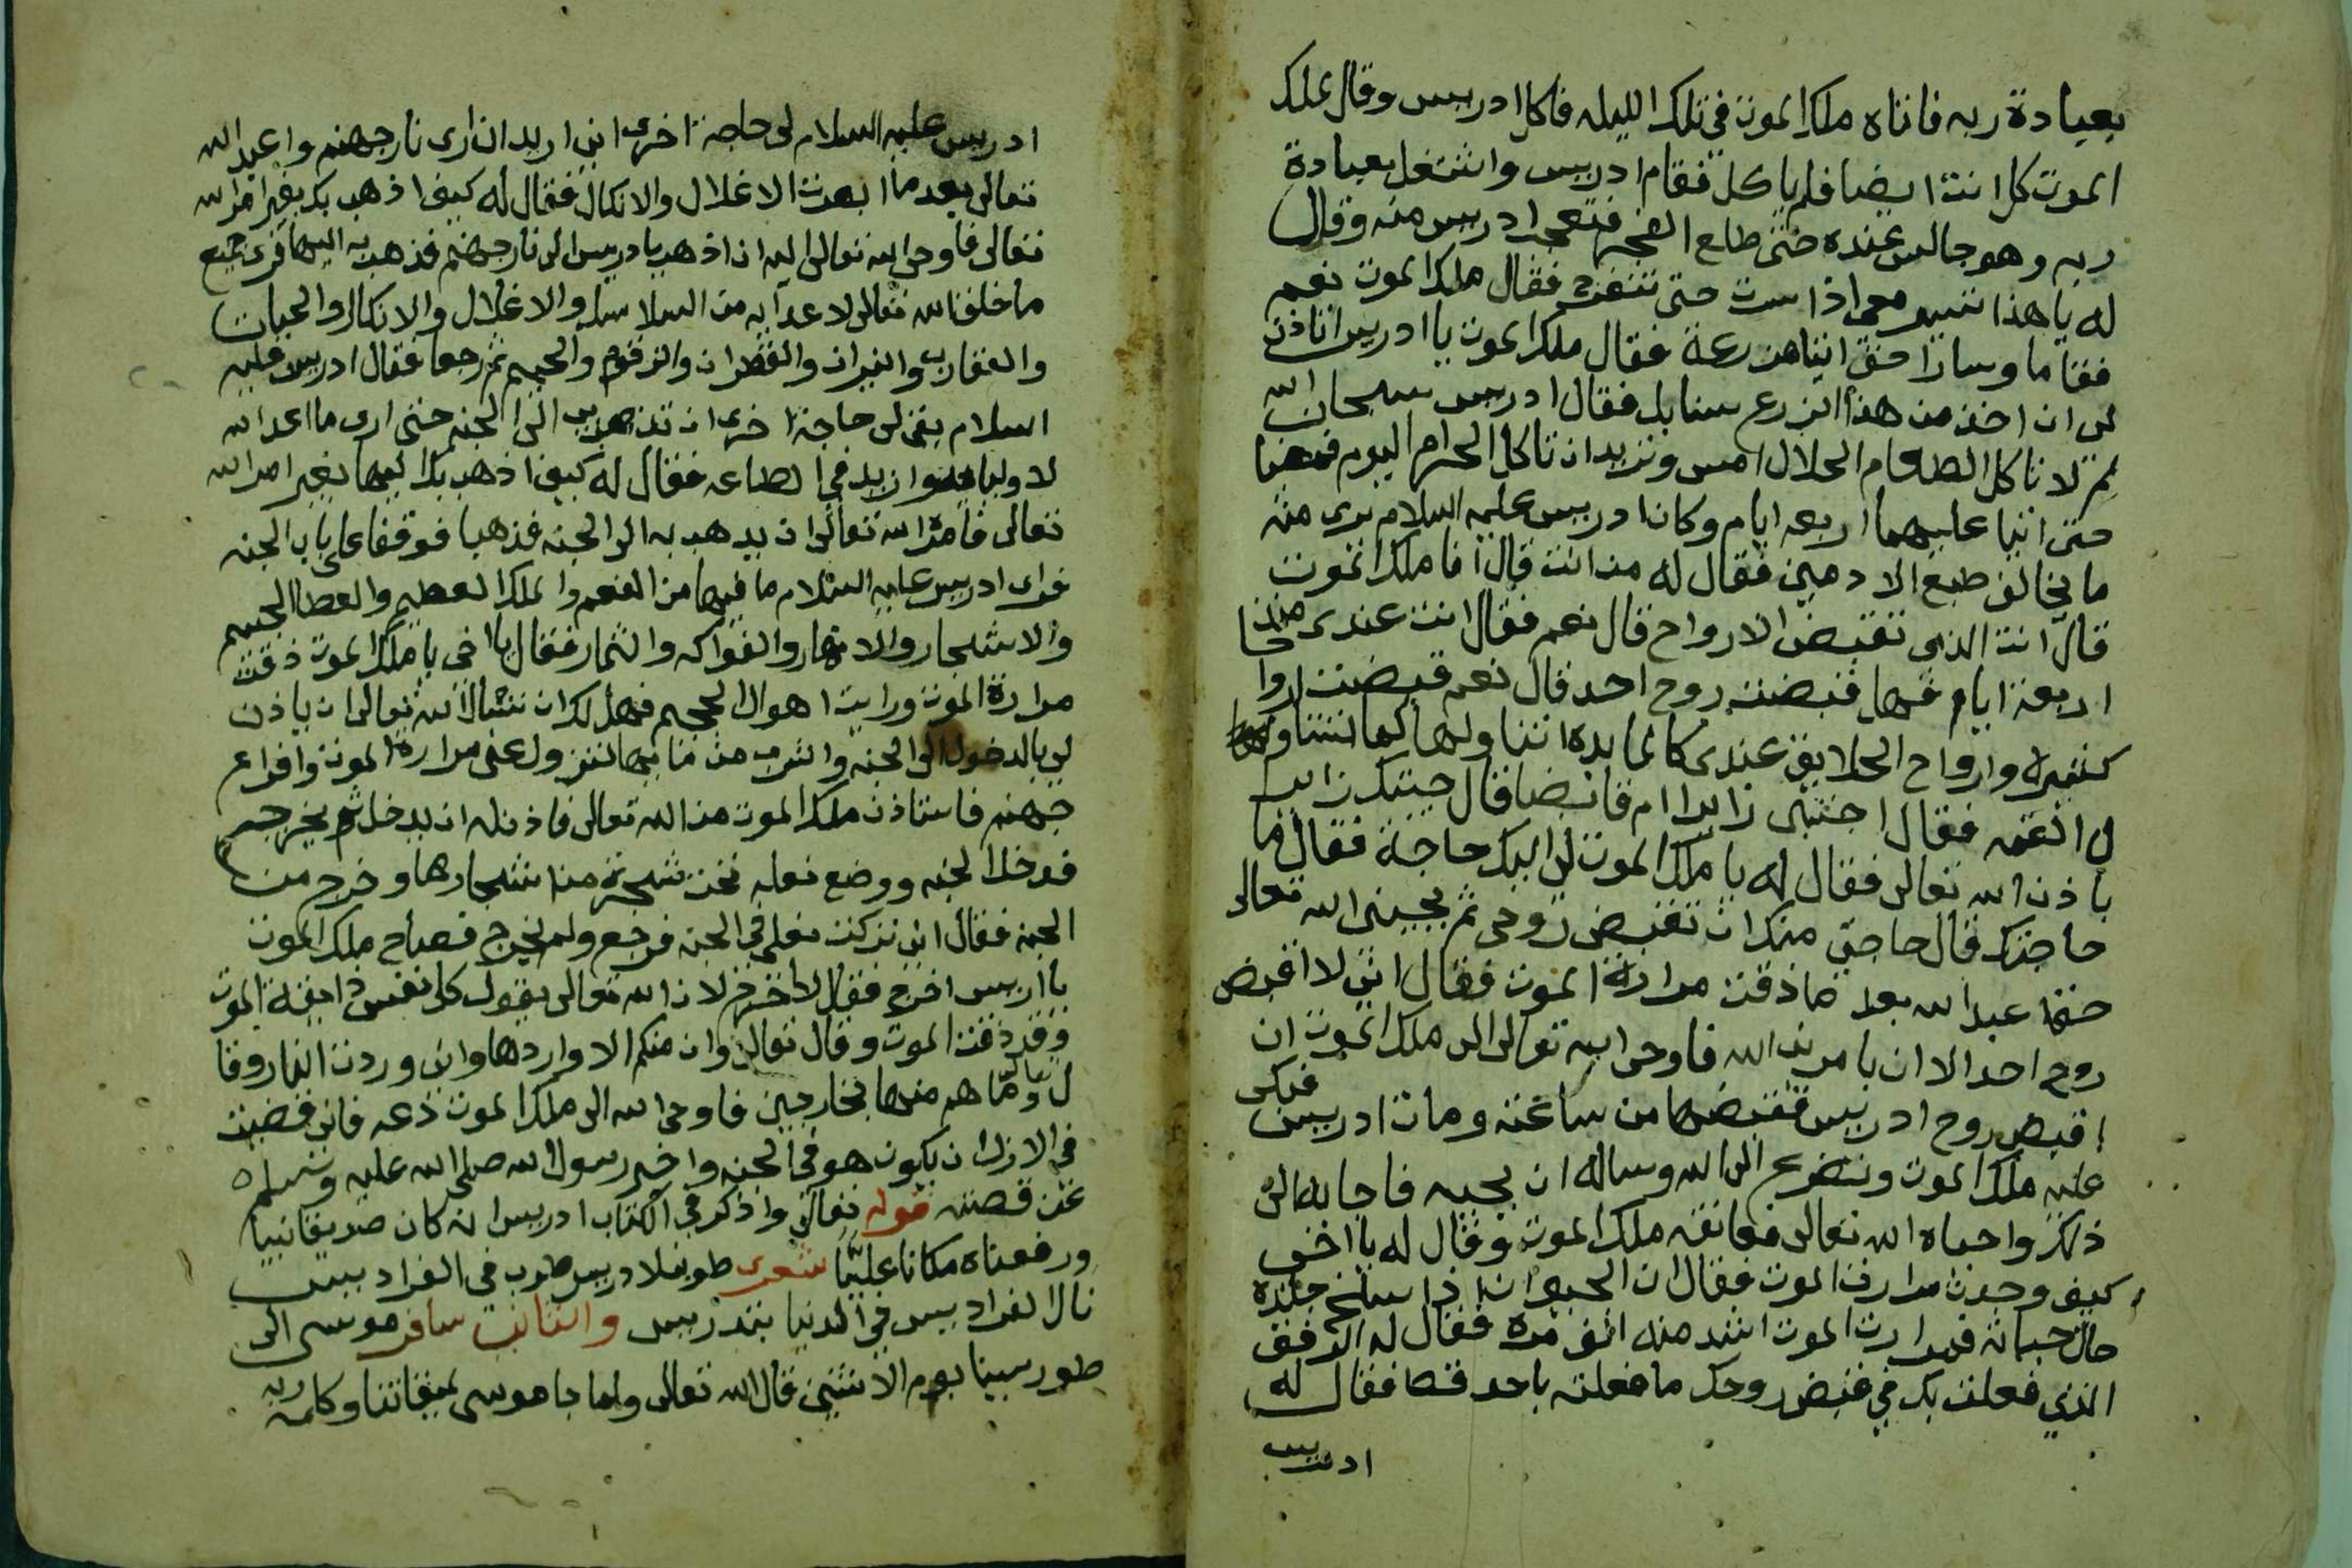 بعبادة ربه فاتاه ملك الموت في تلك الليله فاكل ادريس وقال لملك
الموت كل انت ايضا فلم ياكل فقام ادريس واشتغل بعبادة
ربه وهو جالس عنده حتى طلع الفجر فتعجب ادريس منه وقال
له يا هذا تسير معي اذا سرت حتى تتفرج فقال ملك الموت نعم
فقاما وسارا حتى اتيا مزرعة فقال ملك الموت يا ادريس اتاذن
لي ان اخذ من هذا الزرع سنابل فقال ادريس سبحان الله
لم لا تاكل الطعام الحلال امس وتريد ان تاكل الحرام اليوم فمضيا
حتى اتيا عليهما اربعه ايام وكان ادريس عليه السلام يرى منه
ما يخالف طبع الادميين فقال له من انت قال انا ملك الموت
قال انت الذي تقبض الارواح قال نعم فقال انت عندي منذ
اربعة ايام فهل قبضت روح احد قال نعم قبضت اروا حا
كثيرة وارواح الخلايق عندي كالمايده اتناولها كما تتناول
لي اللقمه فقال اجئتني زايرا ام قابضا قال جيتك زايرا
باذن الله تعالى فقال له يا ملك الموت لي اليك حاجة فقال ما
حاجتك قال حاجتي منك ان تقبض روحي ثم يحييني الله تعالى
حتى اعبد الله بعد ما ذقت مرارة الموت فقال اني لا اقبض
روح احد الا ان يامرني الله فاوحى الله تعالى الى ملك الموت ان
اقبض روح ادريس فقبضها من ساعته ومات ادريس فبكى
عليه ملك الموت وتضرع الى الله وساله ان يحييه فاجابه الى
ذلك واحياه الله تعالى فعانقه ملك الموت وقال له يا اخي
كيف وجدت مرارت الموت فقال ان الحيوان اذا سلخ جلده
حال حياته فمرارت الموت اشد منه الف مرة فقال له الرفق
الذي فعلت بك في قبض روحك ما فعلته باحد قط فقال له
ادريس
ادريس عليه السلام لى حاجة اخرى اني اريد ان ارى نار جهنم واعبد الله
تعالى بعد ما ابصرت الاغلال والانكال فقال له كيف اذهب بك بغير امر الله
تعالى فاوحى الله تعالى اليه ان اذهب بادريس الى نار جهنم فذهب به اليها فراى جميع
ما خلق الله تعالى لاعدايه من السلاسل والاغلال والانكال والحيات
والعقارب والنيران والقطران والزقوم والحميم ثم رجعا فقال ادريس عليه
السلام بقى لى حاجة اخرى ان تذهب بي الى الجنه حتى ارى ما اعد الله
لاوليايه وازيد في الطاعه فقال له كيف اذهب بك اليها بغير امر الله
تعالى فامره الله تعالى ان يذهب به الى الجنه فذهبا فوقفا على باب الجنه
فراى ادريس عليه السلام ما فيها من النعم والملك العظيم والعطا الجسيم
والاشجار والانهار والفواكه والثمار فقال يا اخي يا ملك الموت ذقت
مرارة الموت ورايت اهوال الجحيم فهل لك ان تسال الله تعالى ان ياذن
لي بالدخول الى الجنه واشرب من مايها لتزول عنى مرارة الموت وافزاع
جهنم فاستاذن ملك الموت من الله تعالى فاذن له ان يدخل ثم يخرج
فدخل الجنه ووضع نعله تحت شجرة من اشجارها وخرج من
الجنه فقال اني تركت نعلي في الجنه فرجع ولم يخرج فصاح ملك الموت
يا ادريس اخرج فقال لا اخرج لان الله تعالى يقول كل نفس ذايقة الموت
وقد ذقت الموت وقال تعالى وان منكم الا واردها واني وردت النار وقا
ل تعالى وما هم منها بمخارجين فاوحى الله الى ملك الموت دعه فاني قضيت
في الازل ان يكون هو في الجنه واخبر رسول الله صلى الله عليه وسلم
عن قصته قوله تعالى واذكر في الكتاب ادريس انه كان صديقا نبيا
ورفعناه مكانا عليّا شعر طوبى لادريس طوب في الفراديس
نال الفراديس في الدنيا بتدريس والثالث سافر موسى الى
طور سينا يوم الاثنين قال الله تعالى ولما جا موسى لميقاتنا وكلمه ربه